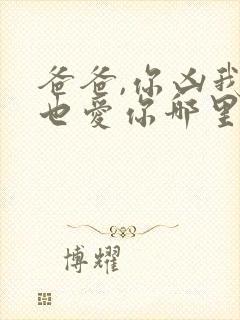 爸爸,你凶我
也爱你哪里
博耀